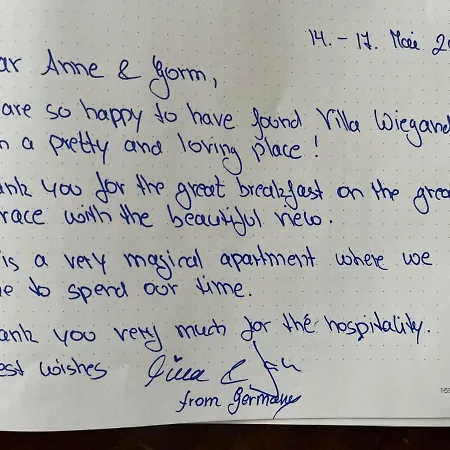 14. – 17. Mai 20
ar Anne & Gorm,
are so happy to have found Villa Wiegand
h a pretty and loving place!
ank you for the great breakfast on the grea
rrace with the beautiful view.
is a very magical apartment where we
e to spend our time.
ank you very much for the hospitality.
est wishes
from Germany